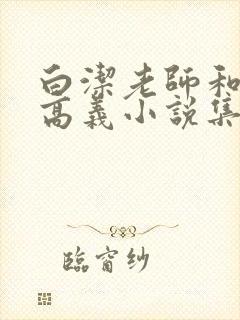 白潔老師和
高義小說集
臨窗紗